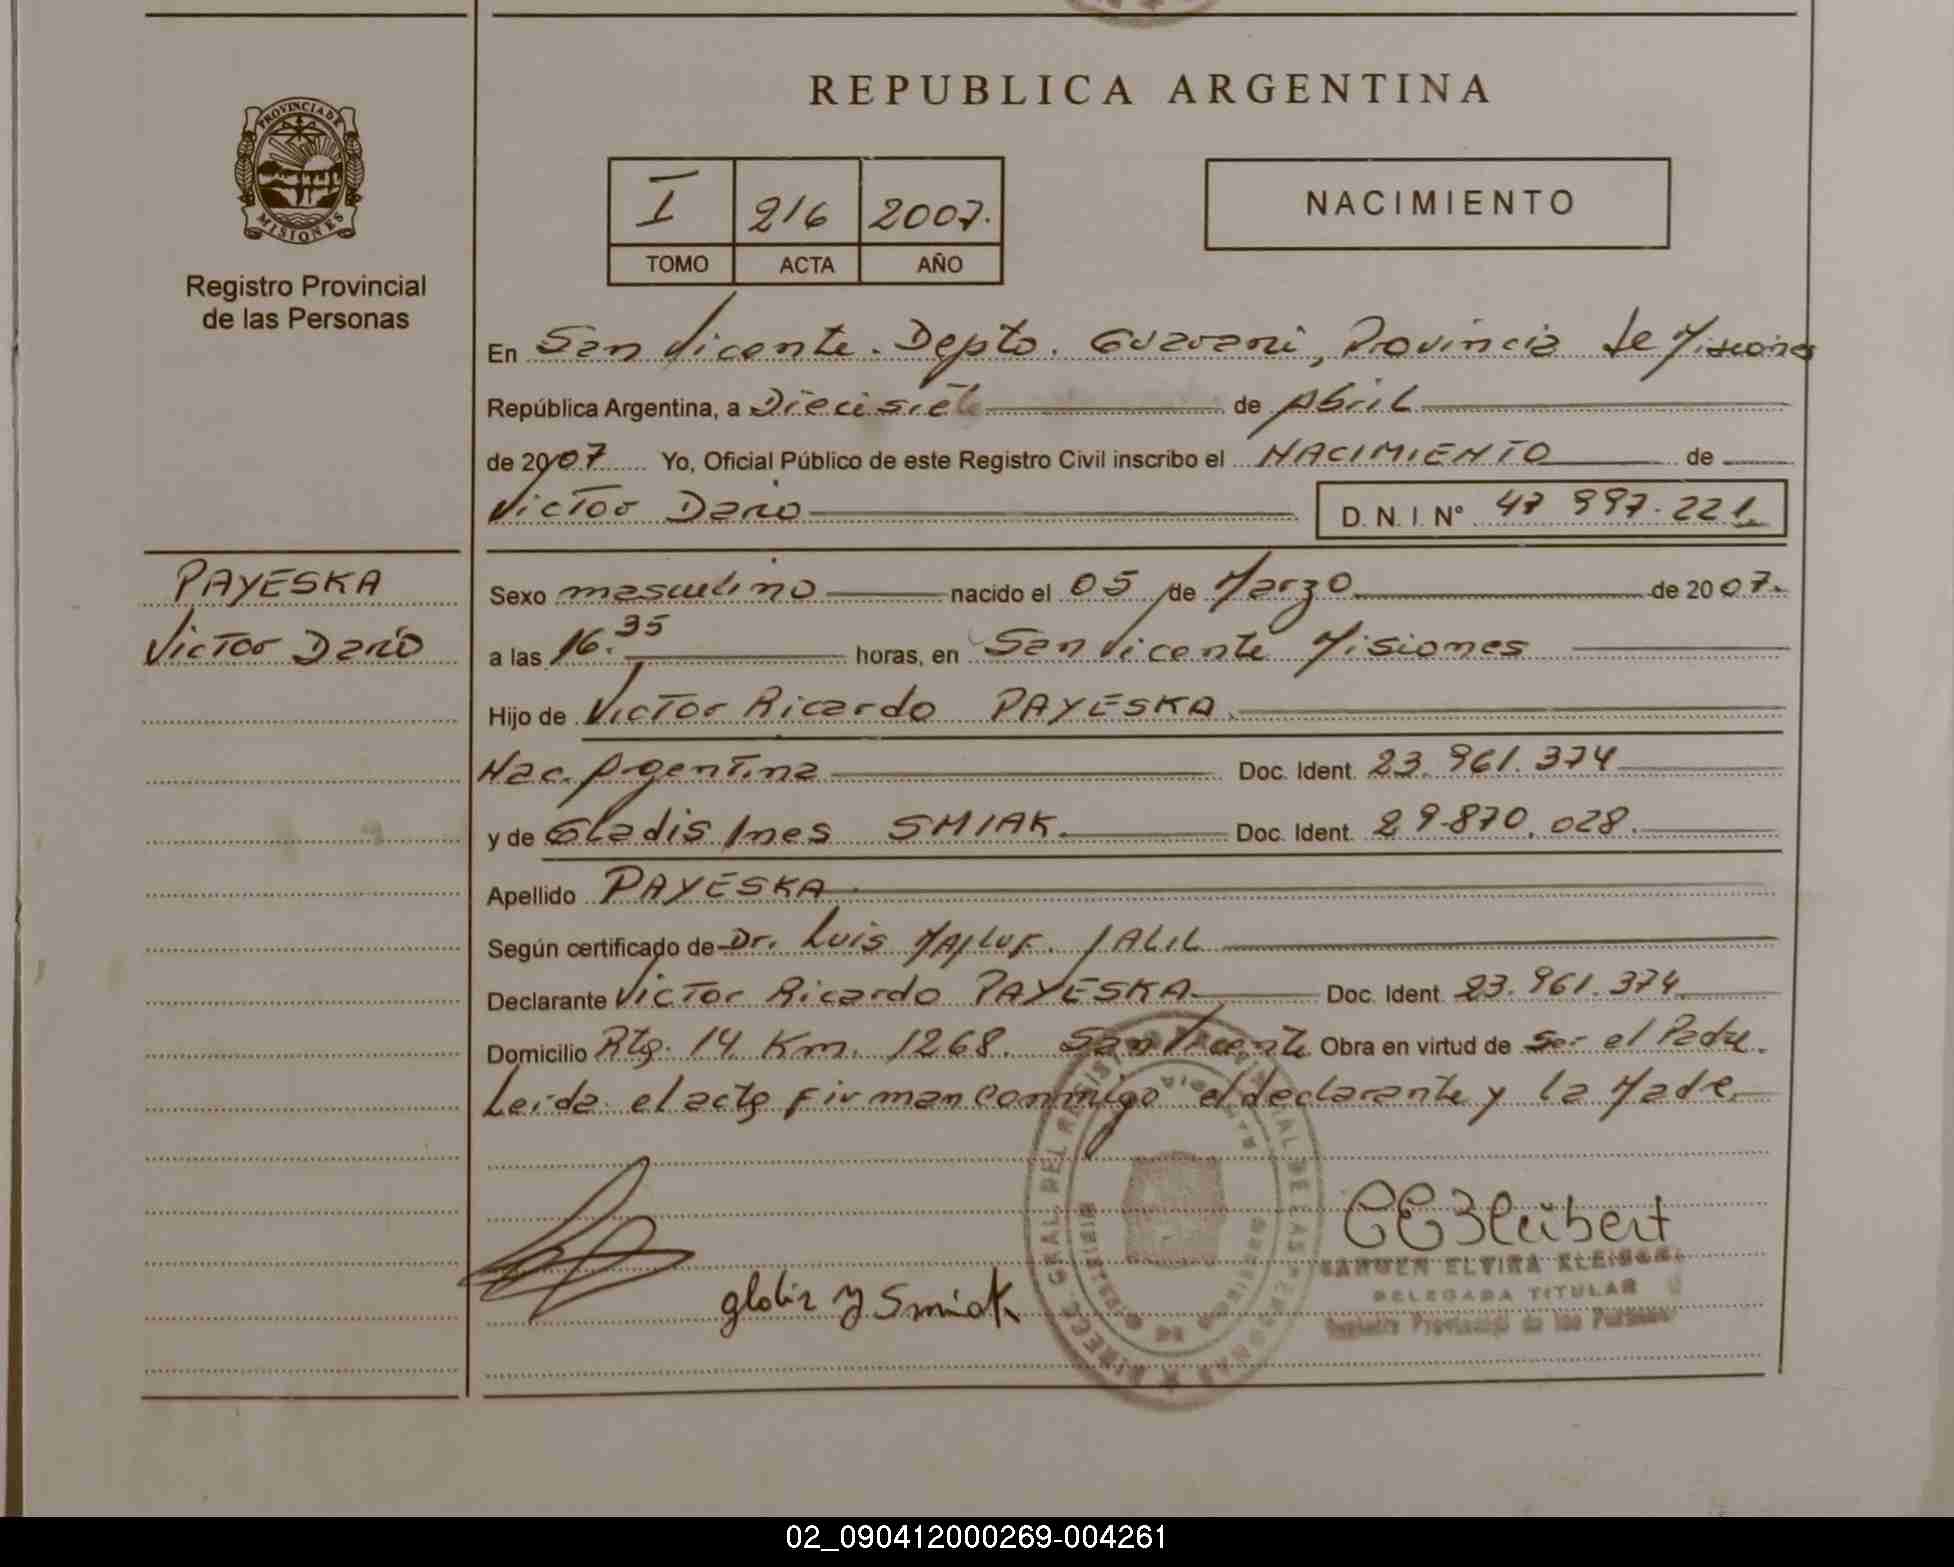 PROVINCIA DE
MISIONES
Registro Provincial
de las Personas
REPUBLICA ARGENTINA
I 216 2007.
TOMO ACTA AÑO
NACIMIENTO
En San Vicente. Depto. Guarani, Provincia de Misiones
República Argentina, a Diecisiete de Abril
de 2007 Yo, Oficial Público de este Registro Civil inscribo el NACIMIENTO de
Victor Dario D. N. I. Nº 47 997.221
PAYESKA
Victor Dario
Sexo masculino nacido el 05 de Marzo de 2007.
a las 16.35 horas, en San Vicente Misiones
Hijo de Victor Ricardo PAYESKA
Nac. Argentina Doc. Ident. 23.961.374
y de Gladis Ines SMIAK Doc. Ident. 29.870.028.
Apellido PAYESKA
Según certificado de Dr. Luis JALIL
Declarante Victor Ricardo PAYESKA Doc. Ident. 23.961.374
Domicilio Rta. 14 Km. 1268. San Vicente Obra en virtud de Ser el Padre.
Leida el acta firman conmigo el declarante y la Madre.
gladiz Y Smiak
CEKleübert
CARMEN ELVIRA
DELEGADA TITULAR
Registro Provincial de las Personas
02_090412000269-004261